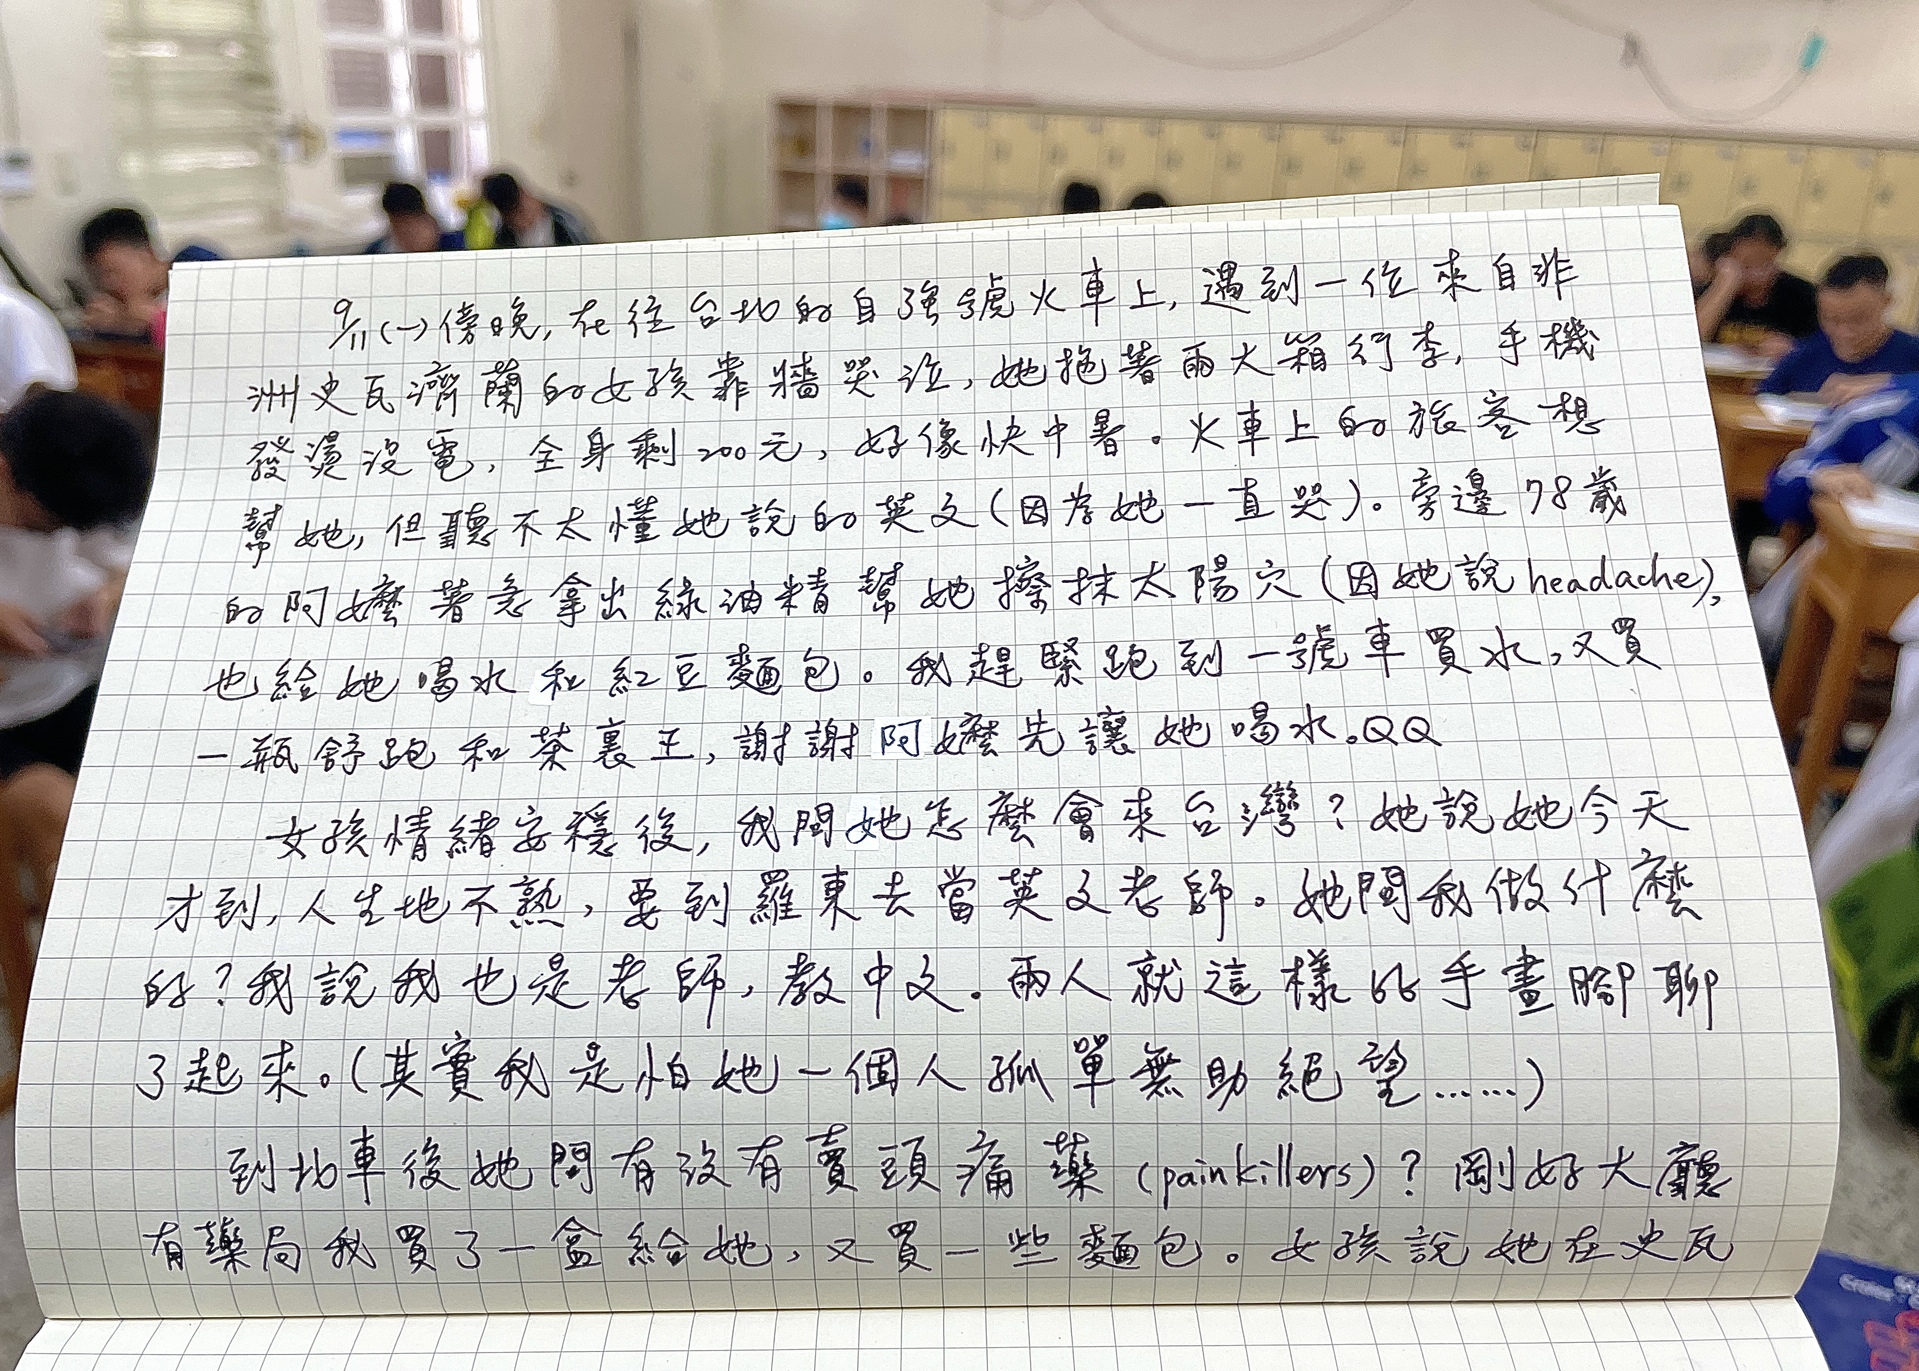 9/11(一)傍晚,在往台北的自強號火車上,遇到一位來自非
洲史瓦濟蘭的女孩靠牆哭泣,她拖著兩大箱行李,手機
發燙沒電,全身剩200元,好像快中暑。火車上的旅客想
幫她,但聽不太懂她說的英文(因為她一直哭)。旁邊78歲
的阿嬤著急拿出綠油精幫她擦抹太陽穴(因她說headache),
也給她喝水和紅豆麵包。我趕緊跑到一號車買水,又買
一瓶舒跑和茶裏王,謝謝阿嬤先讓她喝水。QQ
女孩情緒安穩後,我問她怎麼會來台灣?她說她今天
才到,人生地不熟,要到羅東去當英文老師。她問我做什麼
的?我說我也是老師,教中文。兩人就這樣比手畫腳聊
了起來。(其實我是怕她一個人孤單無助絕望......)
到北車後她問有沒有賣頭痛藥(painkillers)?剛好大廳
有藥局我買了一盒給她,又買一些麵包。女孩說她在史瓦